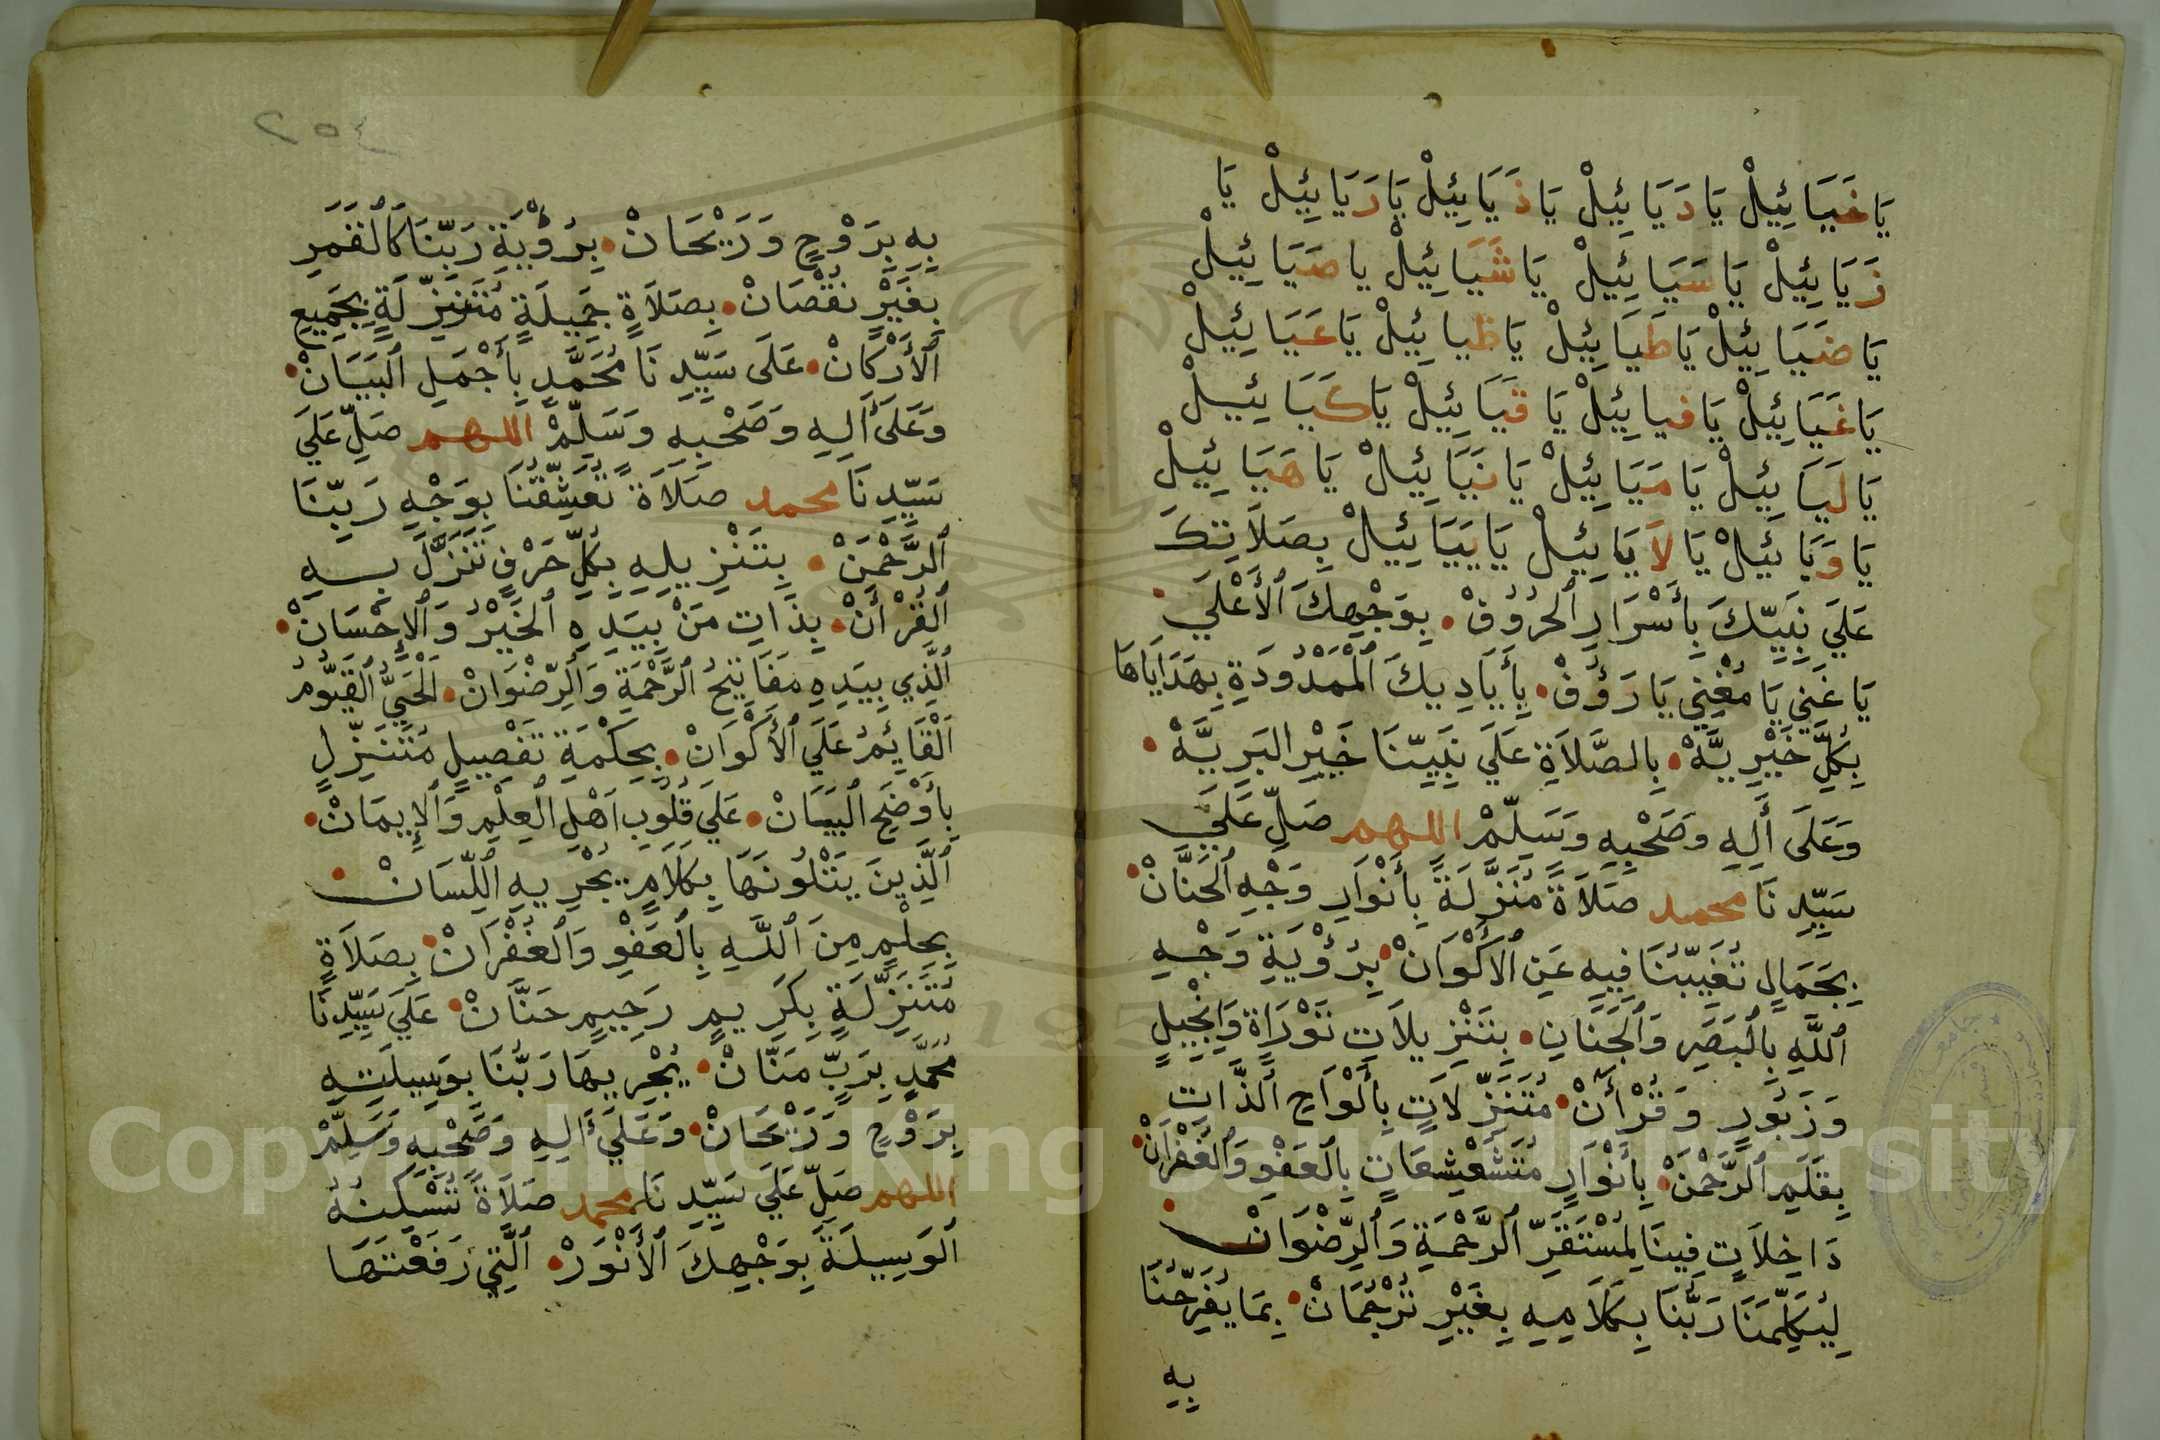 يَا خَيَائِيلْ يَا دَيَائِيلْ يَا ذَيَائِيلْ يَا رَيَائِيلْ يَا
زَيَائِيلْ يَا سَيَائِيلْ يَا شَيَائِيلْ يا صَيَائِيلْ
يَا ضَيَائِيلْ يَا طَيَائِيلْ يَا ظيائِيلْ يَا عَيَائِيلْ
يَا غَيَائِيلْ يَا فيائِيلْ يَا قَيَائِيلْ يَا كَيَائِيلْ
يَا لَيَائِيلْ يَا مَيَائِيلْ يَا نَيَائِيلْ يَا هَيَائِيلْ
يَا وَيَائِيلْ يَا لَايَائِيلْ يَا يَيَائِيلْ بِصَلَاتِكَ
عَلَي نَبِيّكَ بِأَسْرَارِ ٱلحُرُوُفْ. بِوَجْهِكَ ٱلأَعْلَي.
يَا غَنِي يَا مُغْنِي يَا رَؤُفْ. بِأَيَادِيكَ ٱلْمَمْدُودَةِ بِهَدَايَاهَا
بِكُلِّ خَيْرِيَّهْ. بِالصَّلَاةِ عَلَي نَبِيّنَا خَيْرِ البَرِيَّهْ.
وَعَلَى أَلِهِ وَصَحْبِهِ وَسَلِّمْ اللهم صَلِّ عَلَي
سَيّدِنَا محمد صَلَاةً مُنَزَّلَةً بِأَنْوَارِ وَجْهِ ٱلحَنَّانْ.
بِجَمَالٍ تُغَيّبُنَا فِيهِ عَنِ ٱلأَكْوَانْ. بِرُؤْيَةِ وَجْهِ
ٱللَّهِ بِالْبَصَرِ وَٱلْجَنَانِ. بِتَنْزِيلَاتِ تَوْرَاةٍ وَإِنْجِيلٍ
وَزَبُورٍ وَقُرْأَنْ. مُتَنَزِّلَاتٍ بِأَلْوَاحِ ٱلذَّاتِ
بِقَلَمِ ٱلرَّحْمَنْ. بِأَنْوَارٍ مُتَشَعْشِعَاتٍ بِٱلعَفْوِ وَٱلْغُفْرَانْ.
دَاخِلَاتٍ فِينَا لِمُسْتَقَرِّ ٱلرَّحْمَةِ وَٱلرِّضْوَانْ.
لِيُكَلِّمَنَا رَبُّنَا بِكَلَامِهِ بِغَيْرِ تُرْجُمَانْ. بِمَا يُفَرِّحُنَا
بِهِ
٢٥٤
بِهِ بِرَوْحٍ وَرَيْحَانْ. بِرُؤْيَةِ رَبّنَا كَٱلْقَمَرِ
بِغَيْرِ نُقْصَانْ. بِصَلَاةٍ جَمِيلَةٍ مُتَنَزِّلَةٍ بِجَمِيعِ
ٱلأَرْكَانْ. عَلَى سَيّدِنَا مُحَمَّدٍ بِأَجْمَلِ ٱلْبَيَانْ.
وَعَلَى أَلِهِ وَصَحْبِهِ وَسَلِّمْ اللهم صَلِّ عَلَي
سَيّدِنَا محمد صَلَاةً تُعَشِّقُنَا بِوَجْهِ رَبّنَا
ٱلرَّحْمَنْ. بِتَنْزِيلِهِ بِكُلِّ حَرْفٍ تَنَزَّلَ بِهِ
ٱلْقُرْأَنْ. بِذَاتِ مَنْ بِيَدِهِ ٱلخَيْرُ وَٱلإِحْسَانْ.
ٱلَّذِي بِيَدِهِ مَفَاتِيحُ ٱلرَّحْمَةِ وَٱلرِّضْوَانْ. ٱلْحَيُّ ٱلْقَيُّومُ
اَلْقَائِمُ عَلَي ٱلأَكْوَانْ. بِحِكْمَةِ تَفْصِيلٍ مُتَنَزِّلٍ
بِأَوْضَحِ ٱلْبَيَانْ. عَلَي قُلُوبِ اَهْلِ ٱلعِلْمِ وَٱلإِيمَانْ.
ٱلَّذِينَ يَتْلُونَهَا بِكَلَامٍ يُجْرِيهِ ٱللِّسَانْ.
بِحِلْمٍ مِنَ ٱللَّهِ بِٱلْعَفْوِ وَٱلْغُفْرَانْ. بِصَلَاةٍ
مُتَنَزِّلَةٍ بِكَرِيمٍ رَحِيمٍ حَنَّانْ. عَلَي سَيّدِنَا
مُحَمَّدٍ بِرَبٍّ مَنَّانْ. يُجْرِيهَا رَبُّنَا بِوَسِيلَتِهِ
بِرَوْحٍ وَرَيْحَانْ. وَعَلَي أَلِهِ وَصَحْبِهِ وَسَلِّمْ
اللهم صَلِّ عَلَي سَيّدِنَا محمد صَلَاةً تُسْكِنُهُ
ٱلوَسِيلَةَ بِوَجْهِكَ ٱلأَنْوَرْ. ٱلَّتِي رَفَعْتَهَا
Copyright © King Saud University
1957